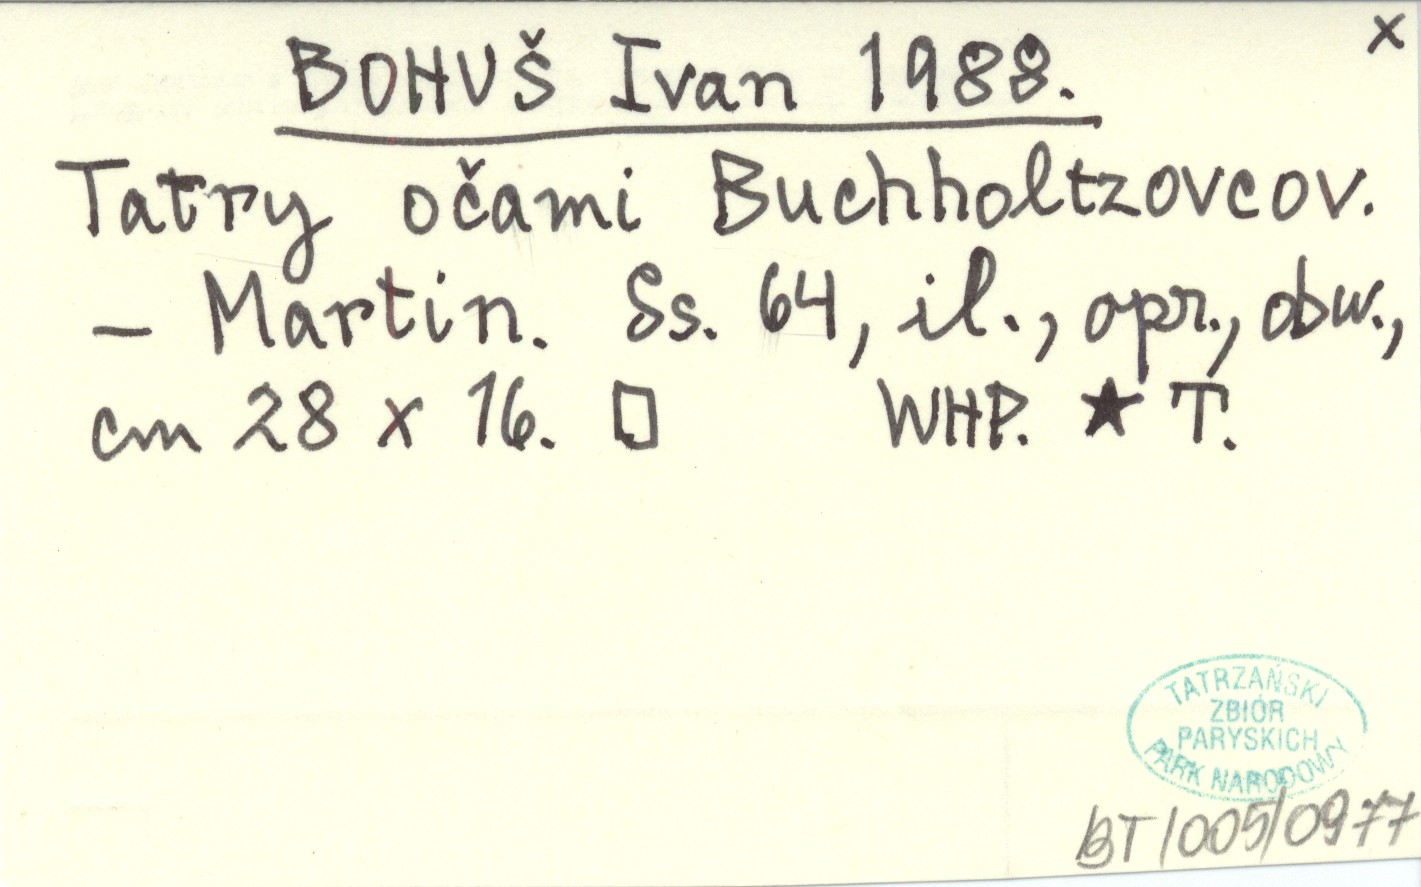 x
BOHUŠ Ivan 1988.
Tatry očami Buchholtzovcov.
– Martin. Ss. 64, il., opr., obw.,
cm 28 x 16. □ WHP. ★ T.
TATRZAŃSKI
ZBIÓR
PARYSKICH
PARK NARODOWY
BT/005/0977